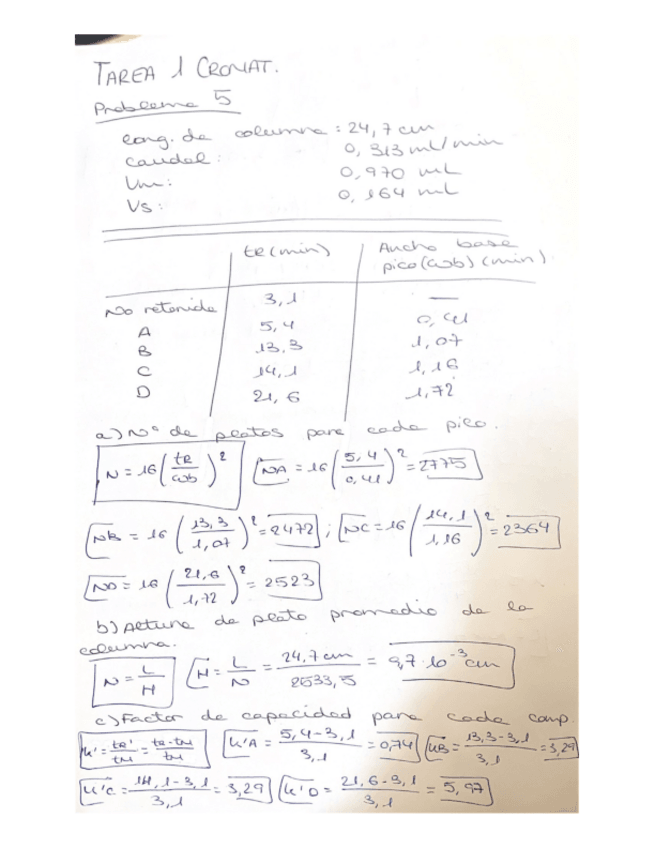 TAREA 1 CROMAT.
Problema 5
Long. de columna: 24,7 cm
Caudal: 0,313 ml/min
Vm: 0,970 mL
Vs: 0,164 mL
tR (min) Ancho base pico (wb) (min)
No retenida 3,1 —
A 5,4 0,41
B 13,3 1,07
C 14,1 1,16
D 21,6 1,72
a) Nº de platos para cada pico.
N = 16 (tR/wb)² NA = 16 (5,4/0,41)² = 2775
NB = 16 (13,3/1,07)² = 2472 ; NC = 16 (14,1/1,16)² = 2364
ND = 16 (21,6/1,72)² = 2523
b) Altura de plato promedio de la
columna.
N = L/H H = L/N = 24,7 cm/2533,5 = 9,7·10⁻³ cm
c) Factor de capacidad para cada comp.
k' = tR'/tM = tR-tM/tM k'A = 5,4-3,1/3,1 = 0,74 k'B = 13,3-3,1/3,1 = 3,29
k'C = 14,1-3,1/3,1 = 3,29 k'D = 21,6-3,1/3,1 = 5,97